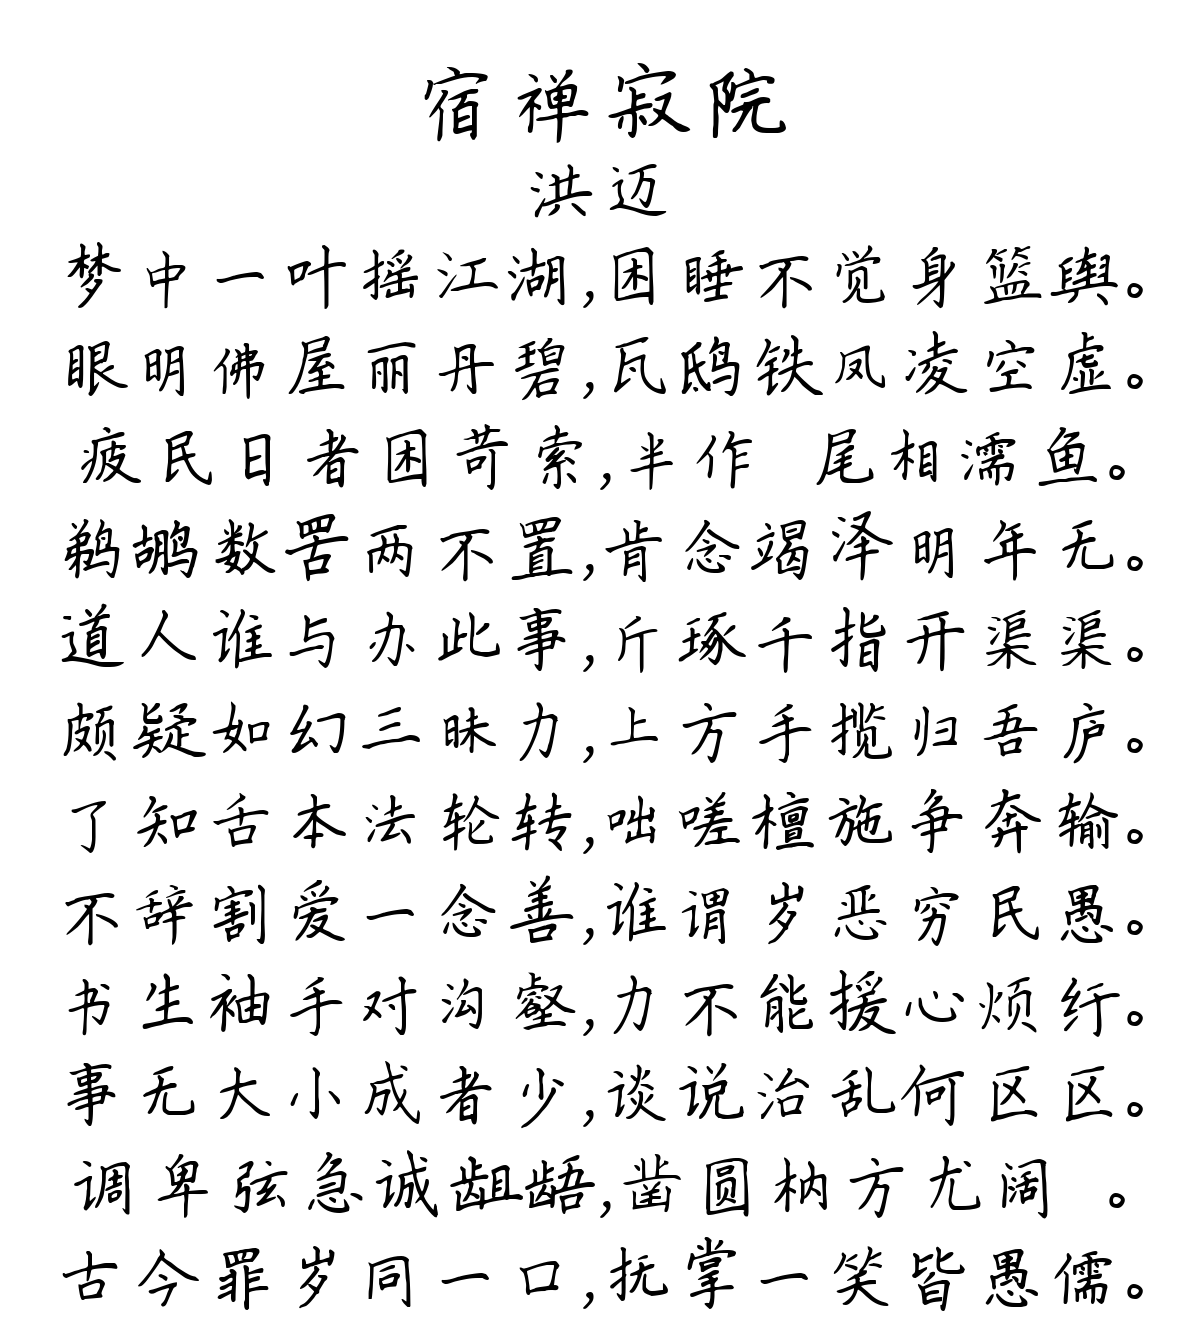 宿禅寂院
洪迈
梦中一叶摇江湖,困睡不觉身篮舆。
眼明佛屋丽丹碧,瓦鸱铁凤凌空虚。
疲民日者困苛索,半作 尾相濡鱼。
鹈鹕数罟两不置,肯念竭泽明年无。
道人谁与办此事,斤琢千指开渠渠。
颇疑如幻三昧力,上方手揽归吾庐。
了知舌本法轮转,咄嗟檀施争奔输。
不辞割爱一念善,谁谓岁恶穷民愚。
书生袖手对沟壑,力不能援心烦纡。
事无大小成者少,谈说治乱何区区。
调卑弦急诚龃龉,凿圆枘方尤阔 。
古今罪岁同一口,抚掌一笑皆愚儒。